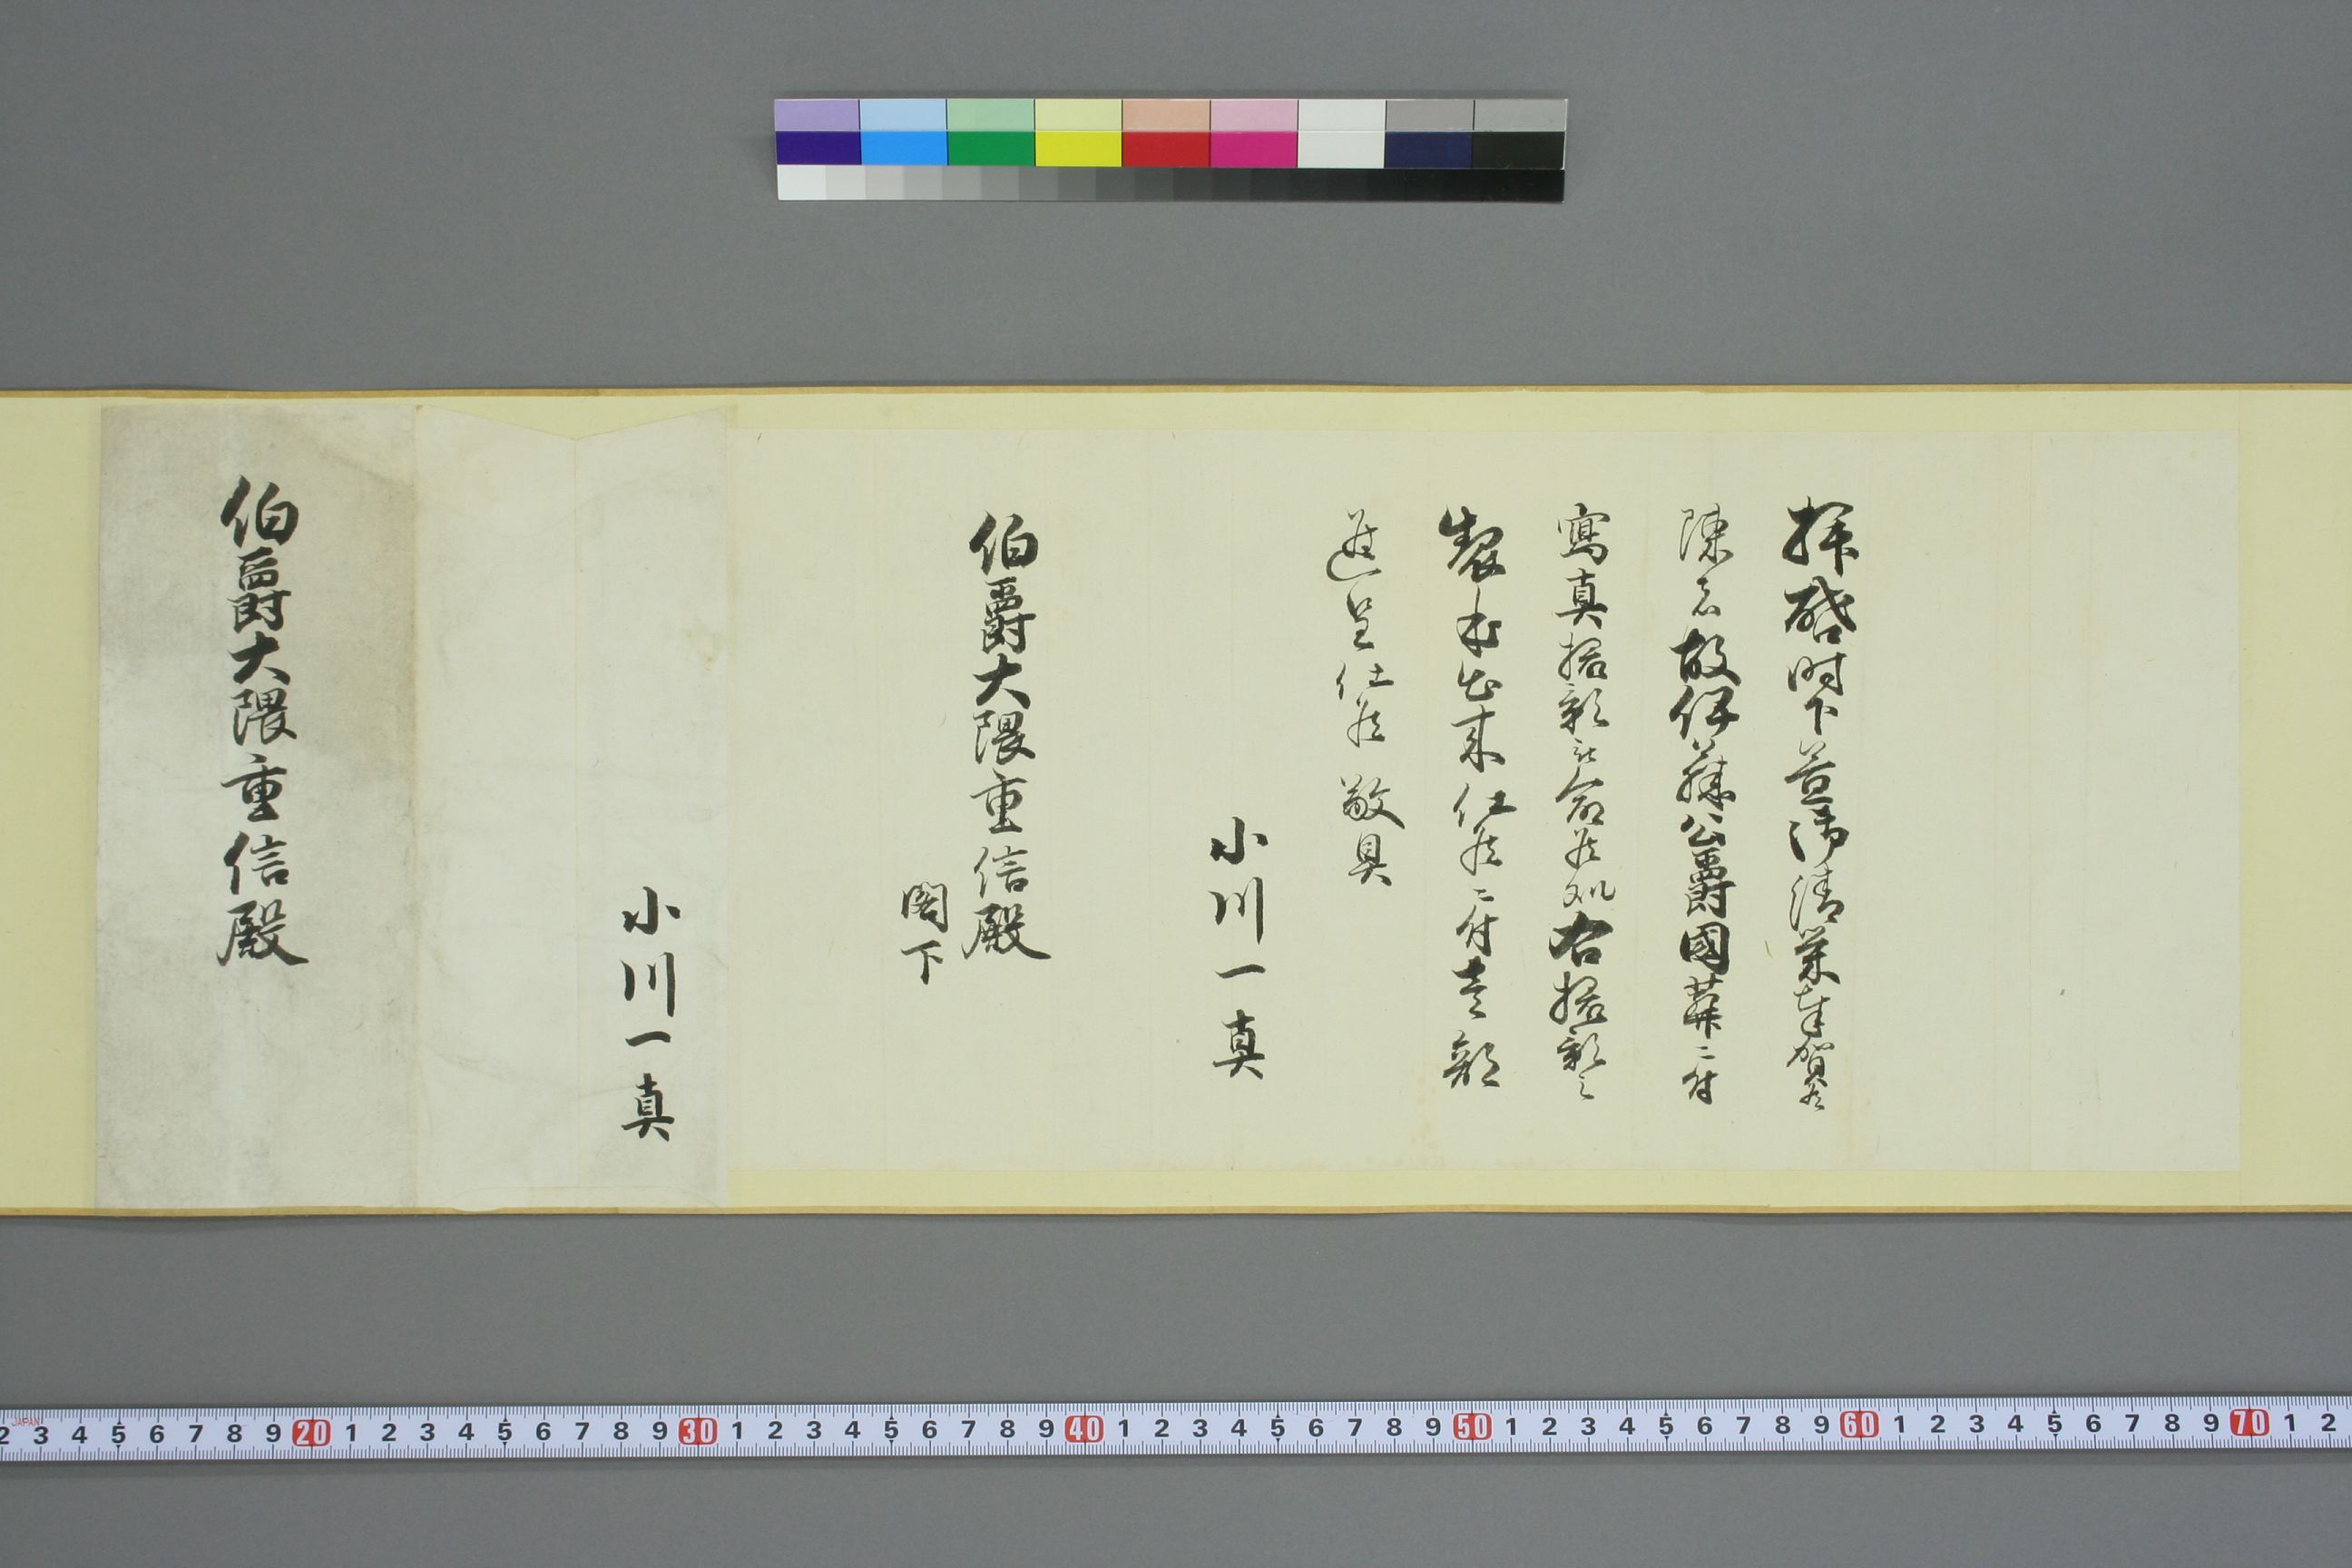 拝啓時下益御清栄奉賀候
陳者故伊藤公爵國葬ニ付
寫真撮影被命候処右撮影之
製本出来仕候ニ付壹部
進呈仕候 敬具
小川一真
伯爵大隈重信殿
閣下
小川一真
伯爵大隈重信殿
JAPAN
2 3 4 5 6 7 8 9 20 1 2 3 4 5 6 7 8 9 30 1 2 3 4 5 6 7 8 9 40 1 2 3 4 5 6 7 8 9 50 1 2 3 4 5 6 7 8 9 60 1 2 3 4 5 6 7 8 9 70 1 2